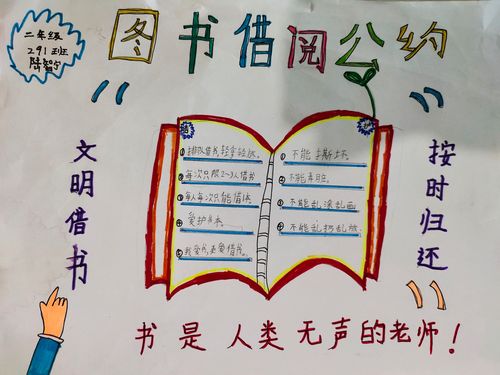 二年级
291班
图书借阅公约
文明借书
按时归还
①排队借书,轻拿轻放。
②每次只限2~3人借书
③每人每次只能借1本
④爱护书本
⑤我爱书,更爱借书。
①不能撕坏
②不能弄脏
③不能乱涂乱画
④不能乱扔乱放
书是人类无声的老师!